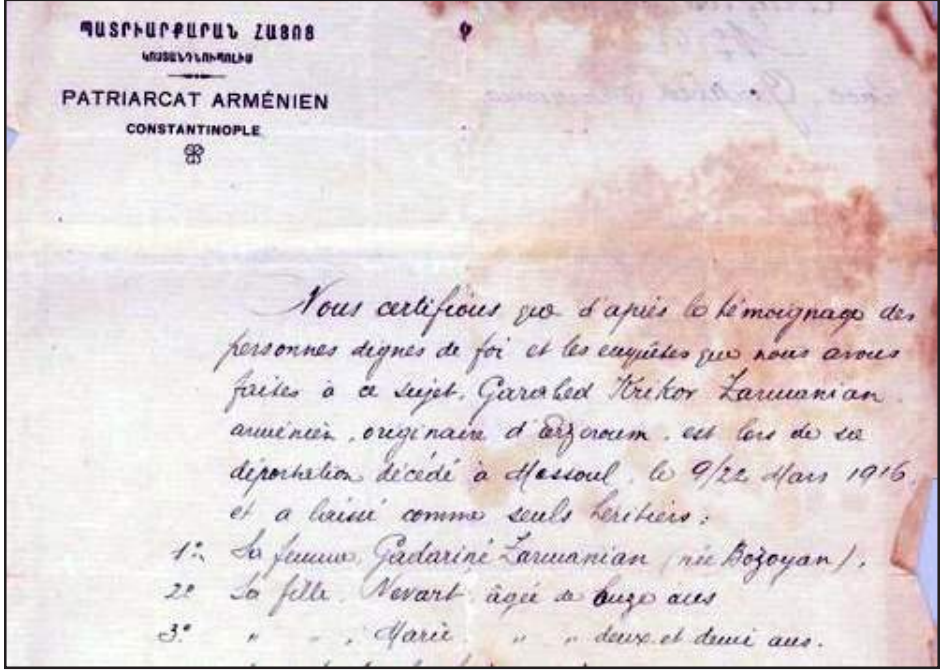 ՊԱՏՐԻԱՐՔԱՐԱՆ ՀԱՅՈՑ
ԿՈՍՏԱՆԴՆՈՒՊՈԼԻՍ
PATRIARCAT ARMÉNIEN
CONSTANTINOPLE
Nous certifions que d'après le témoignage des
personnes dignes de foi et les enquêtes que nous avons
faites à ce sujet, Garabed Krikor Zarmanian
arménien, originaire d'Erzeroum, est lors de sa
déportation décédé à Mossoul, le 9/22 Mars 1916,
et a laissé comme seuls héritiers:
1º Sa femme, Gadariné Zarmanian (née Bozoyan).
2º Sa fille Nevart âgée de onze ans
3º " " , Marie " " deux et demi ans.